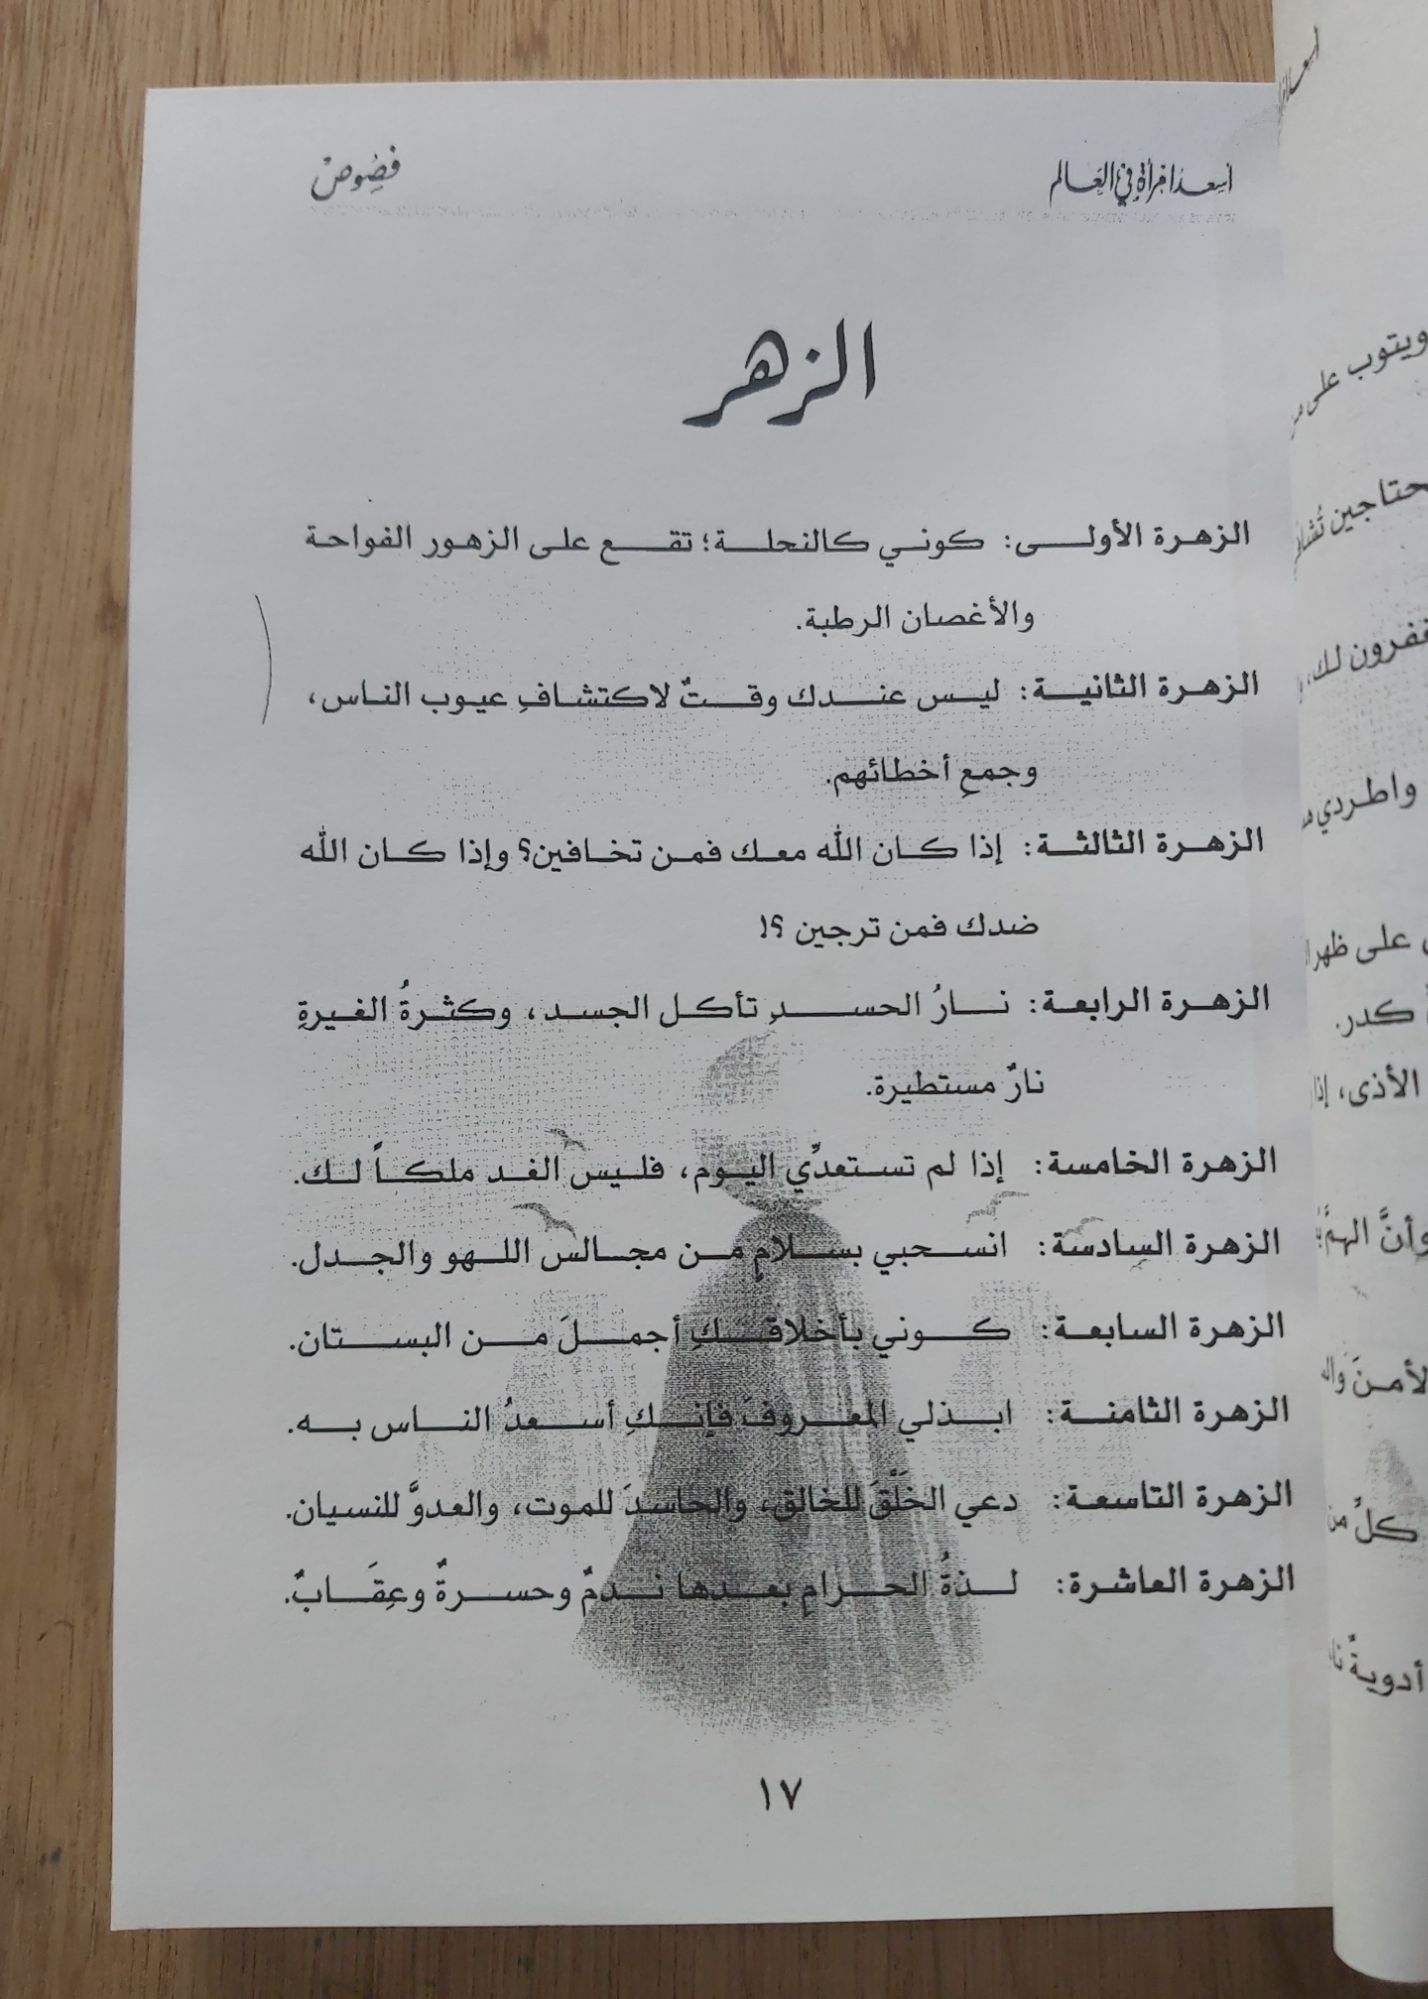 أسعد امرأة في العالم
فصوص
الزهر
الزهرة الأولى: كوني كالنحلة؛ تقع على الزهور الفواحة
والأغصان الرطبة.
الزهرة الثانية: ليس عندك وقتٌ لاكتشافِ عيوب الناس،
وجمعِ أخطائهم.
الزهرة الثالثة: إذا كان الله معك فمن تخافين؟ وإذا كان الله
ضدك فمن ترجين ؟!
الزهرة الرابعة: نارُ الحسدِ تأكل الجسد، وكثرةُ الغيرةِ
نارٌ مستطيرة.
الزهرة الخامسة: إذا لم تستعدِّي اليوم، فليس الغد ملكاً لك.
الزهرة السادسة: انسحبي بسلامٍ من مجالس اللهو والجدل.
الزهرة السابعة: كوني بأخلاقكِ أجملَ من البستان.
الزهرة الثامنة: ابذلي المعروفَ فإنكِ أسعدُ الناس به.
الزهرة التاسعة: دعي الخَلْقَ للخالق، والحاسدَ للموت، والعدوَّ للنسيان.
الزهرة العاشرة: لذةُ الحرامِ بعدها ندمٌ وحسرةٌ وعِقَابٌ.
١٧
ويتوب على
واطردي
على
كدر.
الأذى، إذا
وأنَّ الهمَّ
كلُّ
أدويةٌ